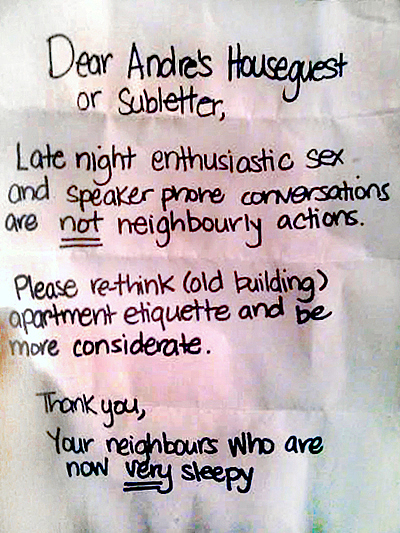 Dear Andre's Houseguest
or Subletter,
Late night enthusiastic sex
and speaker phone conversations
are not neighbourly actions.
Please re-think (old building)
apartment etiquette and be
more considerate.
Thank you,
Your neighbours who are
now very sleepy